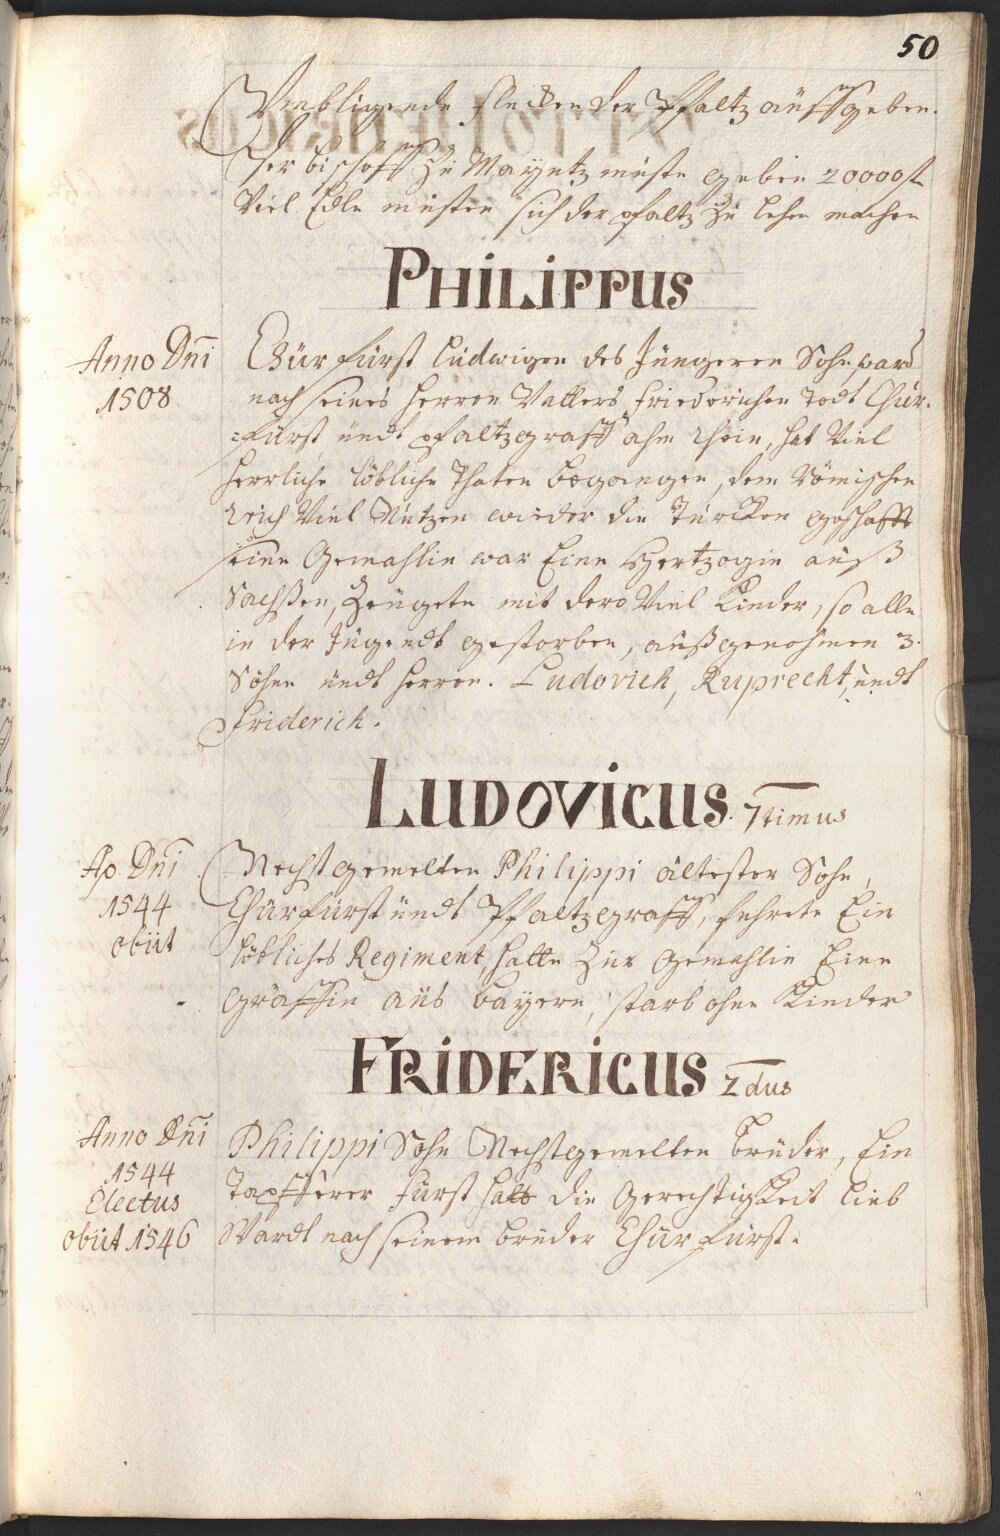 50
Umbligende flecken der Pfaltz aufsgeben.
Der bischoff zu Mayntz muste geben 20000 fl
Viel Edle musten sich der pfaltz zu lehen machen
PHILIPPUS
Anno Dnī
1508
Chürfürst Ludwigen des Jüngeren Sohn, ward
nach seines Herren Vatters Friederichen Todt Chür-
=fürst undt pfaltzgraff ahm Rhein, hat Viel
herrliche löbliche Thaten begangen, dem Römischen
Reich Viel Nutzen wieder die Türcken geschafft
seine Gemahlin war Eine Hertzogin auß
Sachßen, Zeugete mit dero Viel Kinder, so alle
in der Jugendt gestorben, außgenohmen 3.
Söhne undt Herren. Ludovich, Ruprecht, undt
Friderich.
LUDOVICUS. 7timus
Ao. Dnī
1544
obiit
Nechstgemelten Philippi ältester Sohn,
Chürfürst undt Pfaltzgraff, fehrete Ein
löbliches Regiment, hatte zur Gemahlin Eine
Gräffin aus Bayern, starb ohne Kinder
FRIDERICUS 2dus
Anno Dnī
1544
Electus
obiit 1546
Philippi Sohn Nechstgemelten Bruder, Ein
Tapfferer Fürst hatt die Gerechtigkeit lieb
Wardt nach seinem bruder Chürfürst.